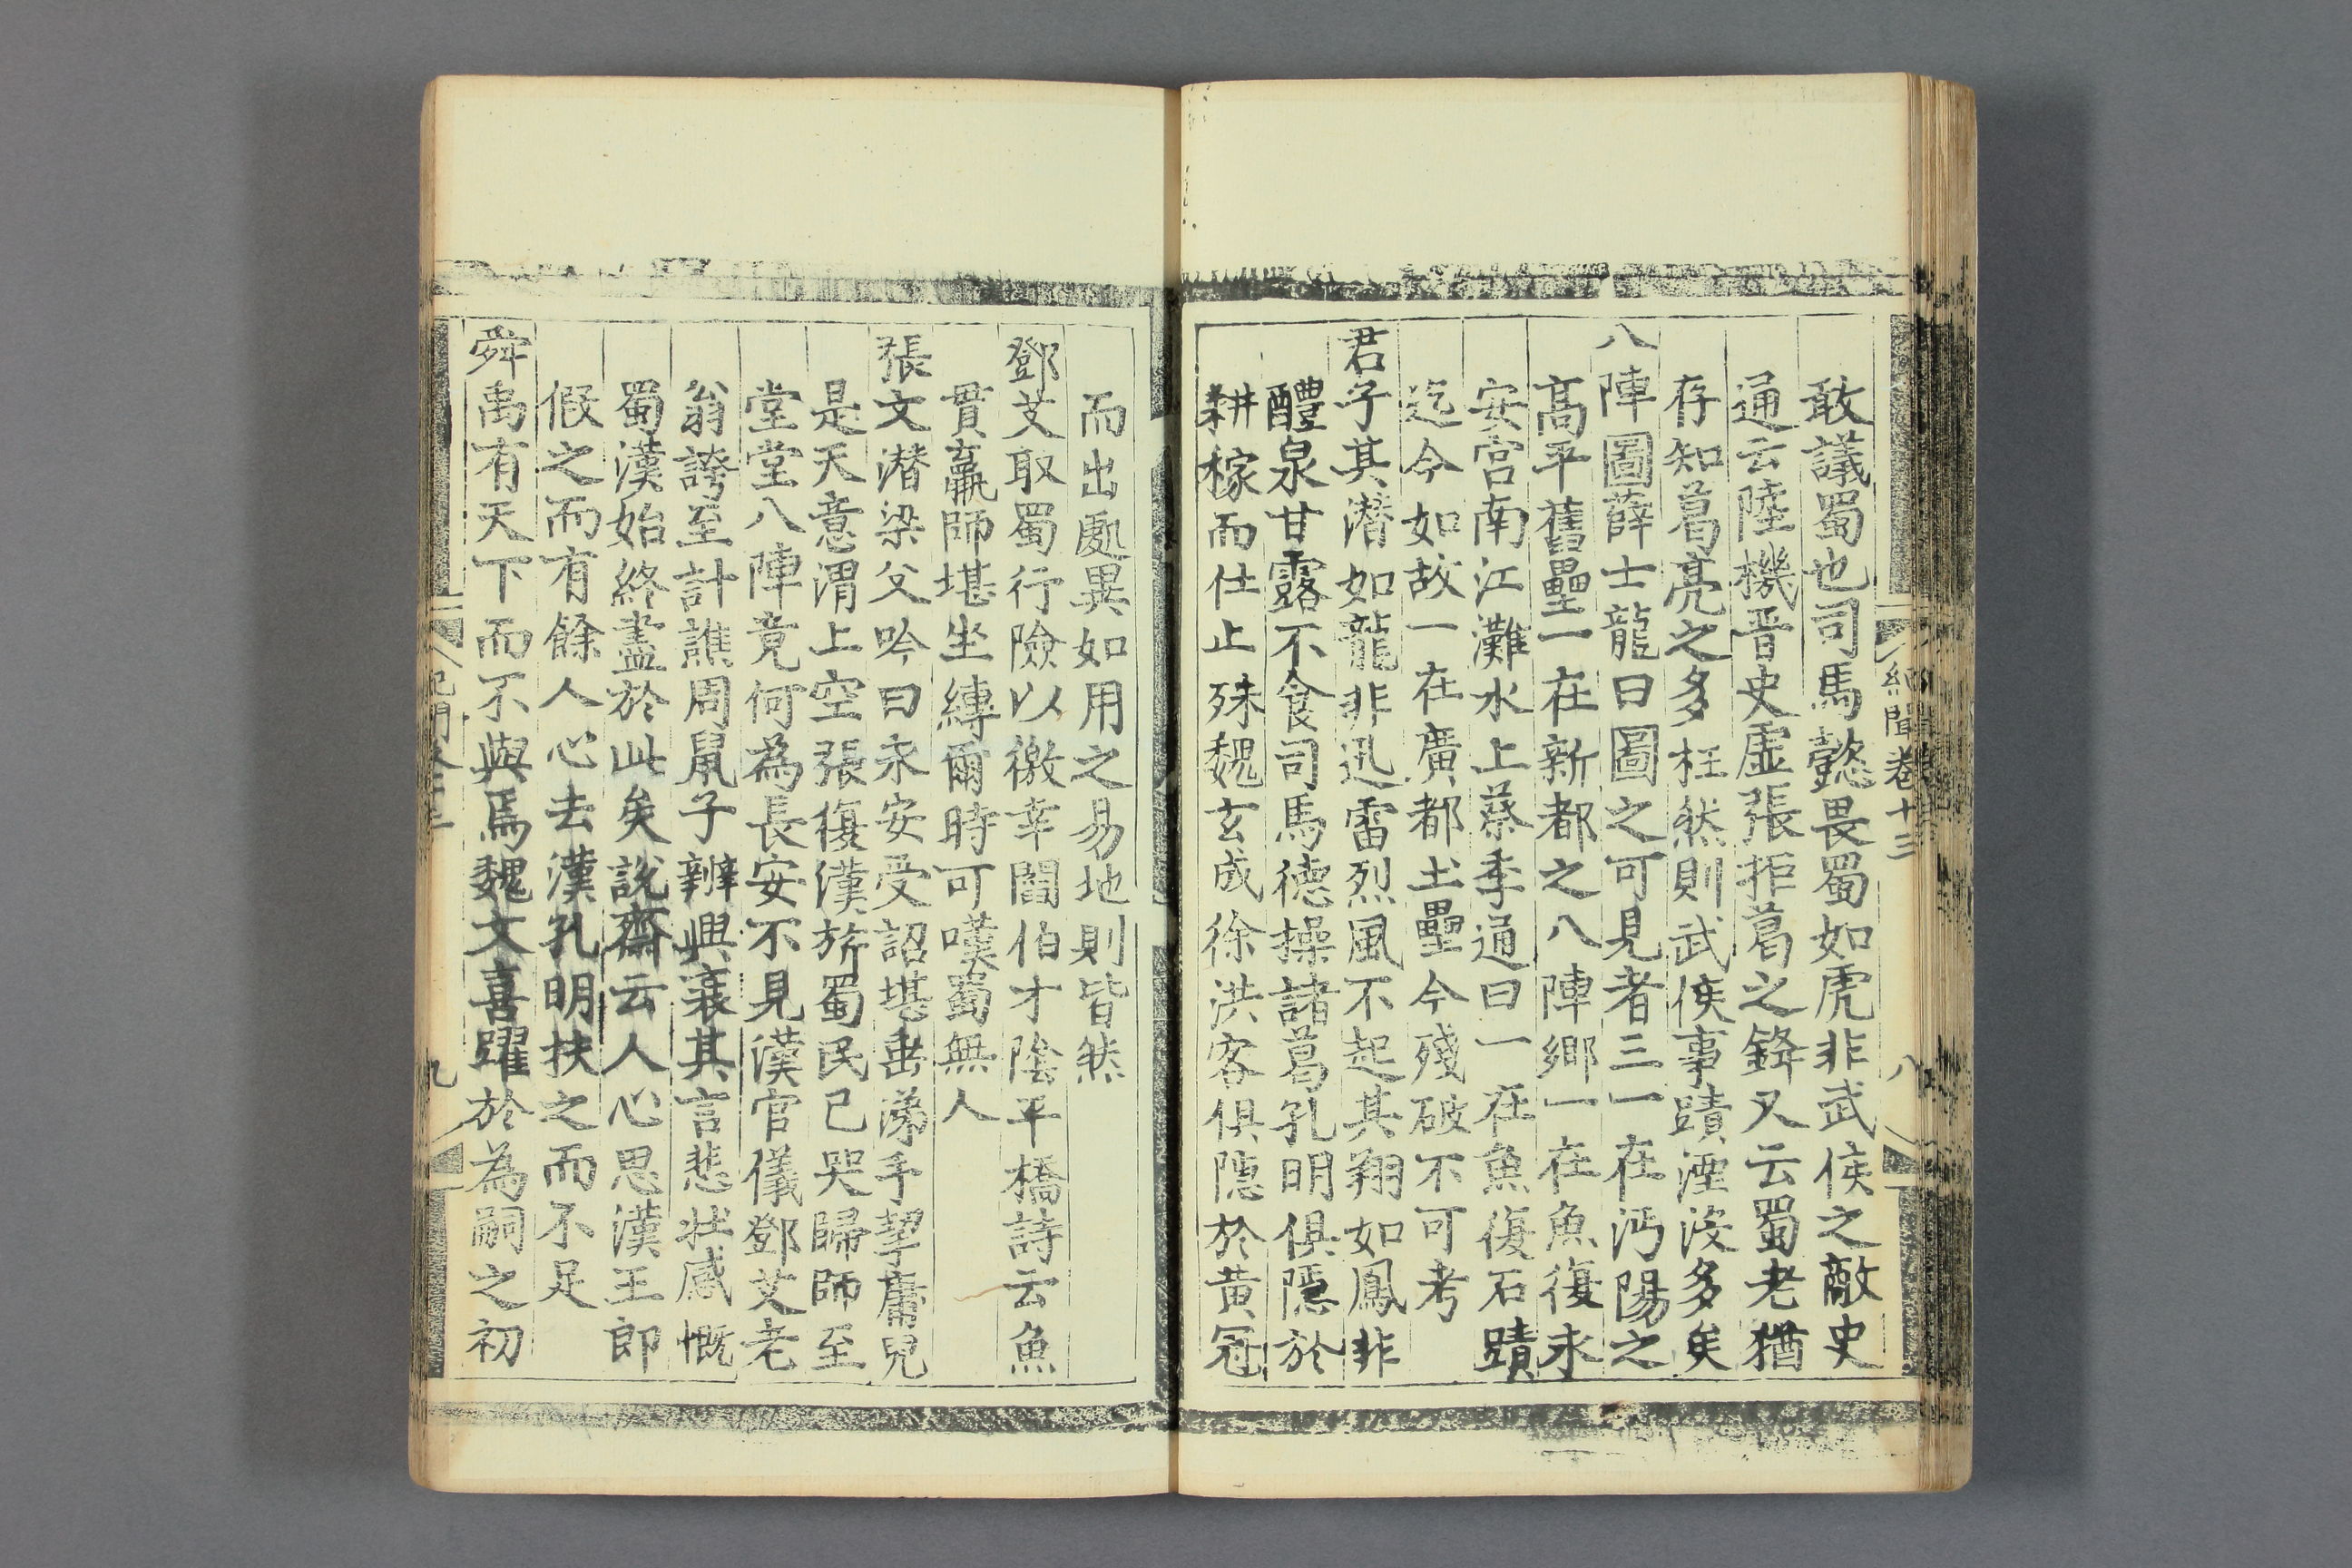 紀聞卷十三
八
敢議蜀也司馬懿畏蜀如虎非武侯之敵史
通云陸機晋史虛張拒葛之鋒又云蜀老猶
存知葛亮之多枉然則武侯事蹟湮没多矣
八陣圖薛士龍曰圖之可見者三一在沔陽之
髙平舊壘一在新都之八陣鄉一在魚復永
安宫南江灘水上蔡季通曰一在魚復石蹟
迄今如故一在廣都土壘今殘破不可考
君子其潜如龍非迅雷烈風不起其翔如鳳非
醴泉甘露不食司馬德操諸葛孔明俱隱於
耕稼而仕止殊魏玄成徐洪客俱隱於黄冠
而出處異如用之易地則皆然
鄧艾取蜀行險以徼幸閻伯才陰平橋詩云魚
貫羸師堪坐縳爾時可嘆蜀無人
張文潜梁父吟曰永安受詔堪垂涕手挈庸兒
是天意渭上空張復漢旂蜀民已哭歸師至
堂堂八陣竟何為長安不見漢官儀鄧艾老
翁誇至計譙周鼠子辨興衰其言悲壯感慨
蜀漢始終盡於此矣說齋云人心思漢王郎
假之而有餘人心去漢孔明扶之而不足
舜禹有天下而不與焉魏文喜躍於為嗣之初
九